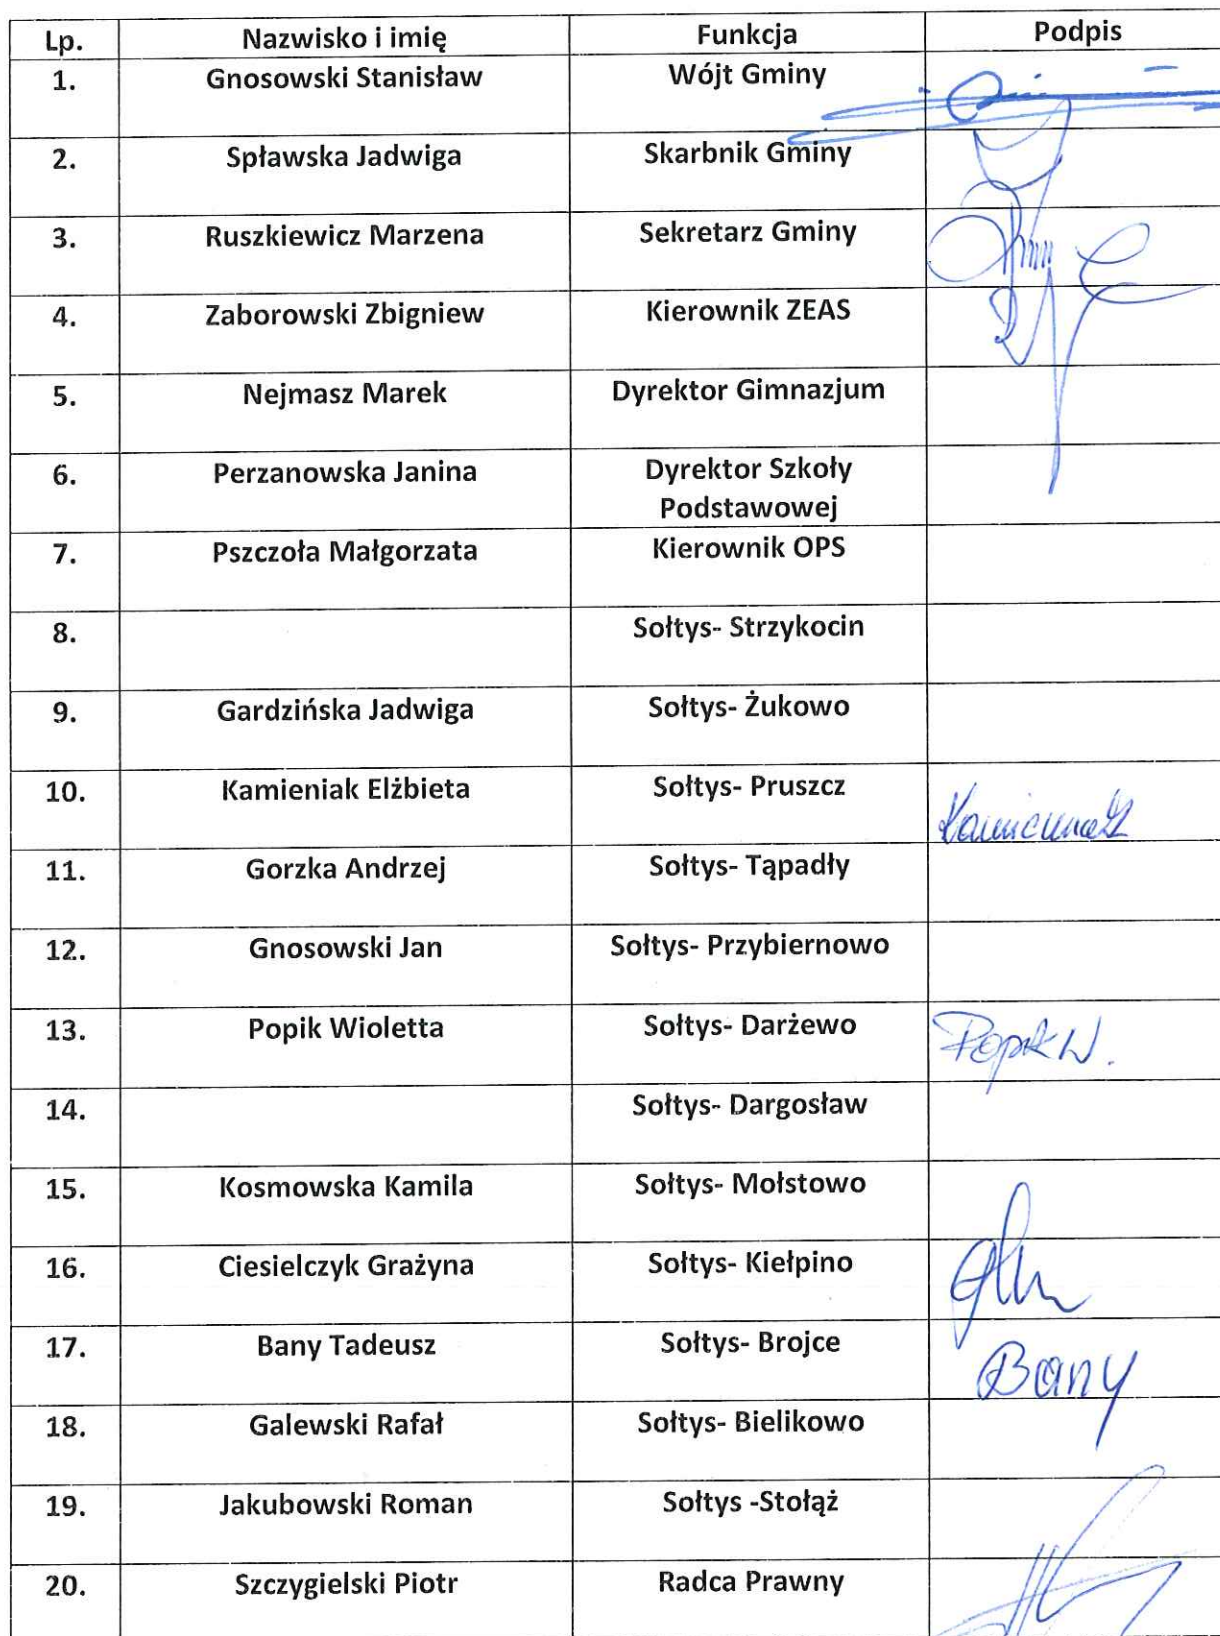 Lp. Nazwisko i imię Funkcja Podpis
1. Gnosowski Stanisław Wójt Gminy
2. Spławska Jadwiga Skarbnik Gminy
3. Ruszkiewicz Marzena Sekretarz Gminy
4. Zaborowski Zbigniew Kierownik ZEAS
5. Nejmasz Marek Dyrektor Gimnazjum
6. Perzanowska Janina Dyrektor Szkoły
Podstawowej
7. Pszczoła Małgorzata Kierownik OPS
8. Sołtys- Strzykocin
9. Gardzińska Jadwiga Sołtys- Żukowo
10. Kamieniak Elżbieta Sołtys- Pruszcz
11. Gorzka Andrzej Sołtys- Tąpadły
12. Gnosowski Jan Sołtys- Przybiernowo
13. Popik Wioletta Sołtys- Darżewo Popik W.
14. Sołtys- Dargosław
15. Kosmowska Kamila Sołtys- Mołstowo
16. Ciesielczyk Grażyna Sołtys- Kiełpino
17. Bany Tadeusz Sołtys- Brojce Bany
18. Galewski Rafał Sołtys- Bielikowo
19. Jakubowski Roman Sołtys -Stołąż
20. Szczygielski Piotr Radca Prawny